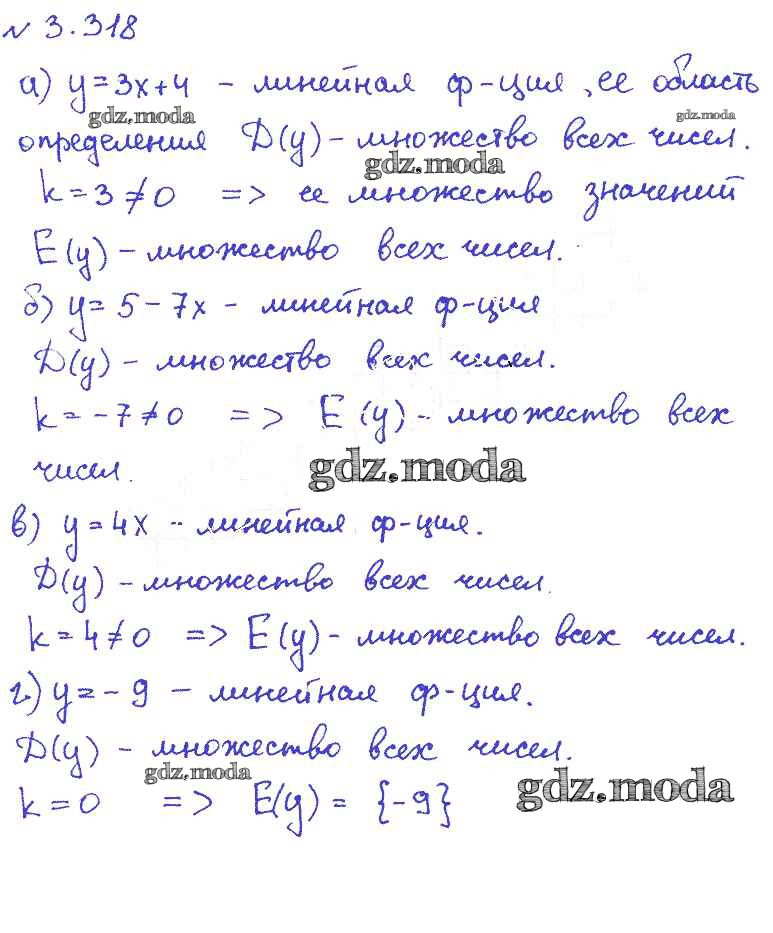 № 3.318
а) y=3x+4 - линейная ф-ция, ее область
gdz.moda gdz.moda
определения D(y) - множество всех чисел.
gdz.moda
k=3≠0 => ее множество значений
E(y) - множество всех чисел.
б) y=5-7x - линейная ф-ция
D(y) - множество всех чисел.
k=-7≠0 => E(y) - множество всех
чисел.
gdz.moda
в) y=4x - линейная ф-ция.
D(y) - множество всех чисел.
k=4≠0 => E(y) - множество всех чисел.
г) y=-9 - линейная ф-ция.
D(y) - множество всех чисел.
gdz.moda gdz.moda
k=0 => E(y) = {-9}